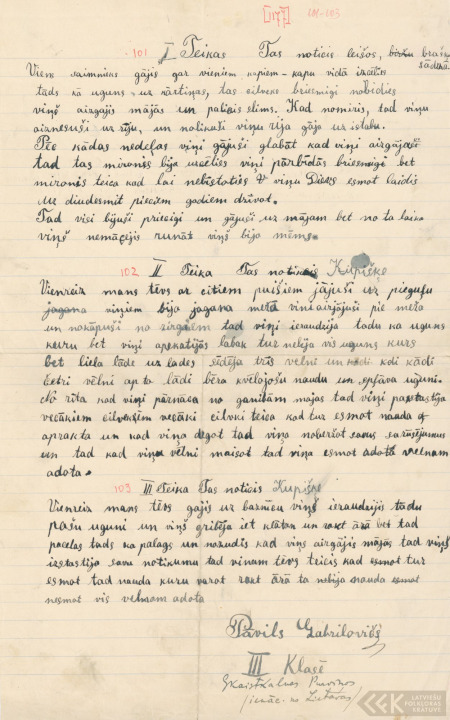 [1177] LM-103
101 I Teikas Tas noticis leišos, braša
sādžā.
Viens saimnieks gājis gar vieniem kapiem – kapu vidū izcēlies
tāds kā uguns uz kārtiņas, tas cilvēks briesmīgi nobīdies
viņš aizgājis mājās un palicis slims. Kad nomiris, tad viņu
aiznesuši uz rīju, un nolikuši viņu rīja gāja uz istabu.
Pēc kādas nedēļas viņi gājuši glabāt kad viņi aizgājuši
tad tas mironis bija uzcēlies viņi pārbīdās briesmīgi bet
mironis teica kad lai nebīstoties viņu Dievs esmot laidis
uz divdesmit pieciem gadiem dzīvot.
Tad visi bijuši priecīgi un gājuši uz mājam bet no ta laika
viņš nemācējis runāt viņš bija mēms.
102 II Teika Tas noticis Kupišķe
Vienreiz mans tēvs ar citiem puišiem jājuši uz pieguļu
jagana viņiem bija jagana meža viņi aizjājuši pie meža
un nokāpuši no zirgiem tad viņi ieraudzīja tādu ka uguns
kuru bet viņi apskatījās labāk tur nebija vis uguns kurs
bet liela lāde uz lādes sēdēja trīs velni un kādi
četri vēlni ap to lādi bēra kvēlojošu naudu un spļāva uguni.
No rīta kad viņi pārnāca no ganībām mājas tad viņi pastastīja
vecākiem cilvekiem vecāki cilveki teica kad tur esmot nauda
aprakta un kad viņa degot tad viņa noberžot savus sarūsējumus
un tad kad viņu vēlni maisot tad viņa esmot adota velnam
adota.
103 III Teika Tas noticis Kupiške
Vienreiz mans tēvs gājis uz baznīcu viņš ieraudzījis tādu
pašu uguni un viņš gribēja iet klātan un rakt ārā bet tad
pacēlās tāds ka palags un nozudis kad viņš aizgājis mājās tad viņš
izstastīja savu notikumu tad viņam tēvs teicis kad esmot tur
esmot tad nauda kuru varot rakt ārā ta nebija nauda esmot
nesmot vis velnam adota
Pāvils Gabrilovičs
III Klasē
Skaistkalnes
/ienāc. no Lietavas/
LATVIEŠU
FOLKLORAS
KRĀTUVE